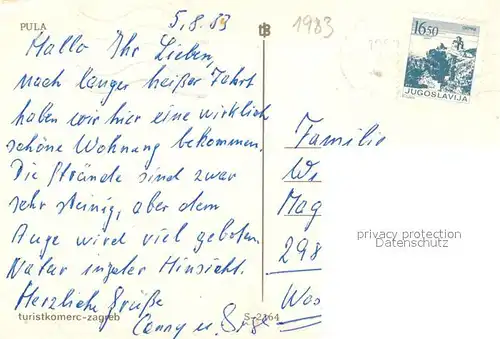 PULA
5.8.83
1983
Hallo Ihr Lieben,
nach langer heißer Fahrt
haben wir hier eine wirklich
schöne Wohnung bekommen.
Die Strände sind zwar
sehr steinig, aber dem
Auge wird viel geboten.
Natur in jeder Hinsicht.
Herzliche Grüße
Conny u.
turistkomerc-zagreb
S-2364
16,50
JUGOSLAVIJA
Familie
W
Mag
298
Wos
privacy protection
Datenschutz